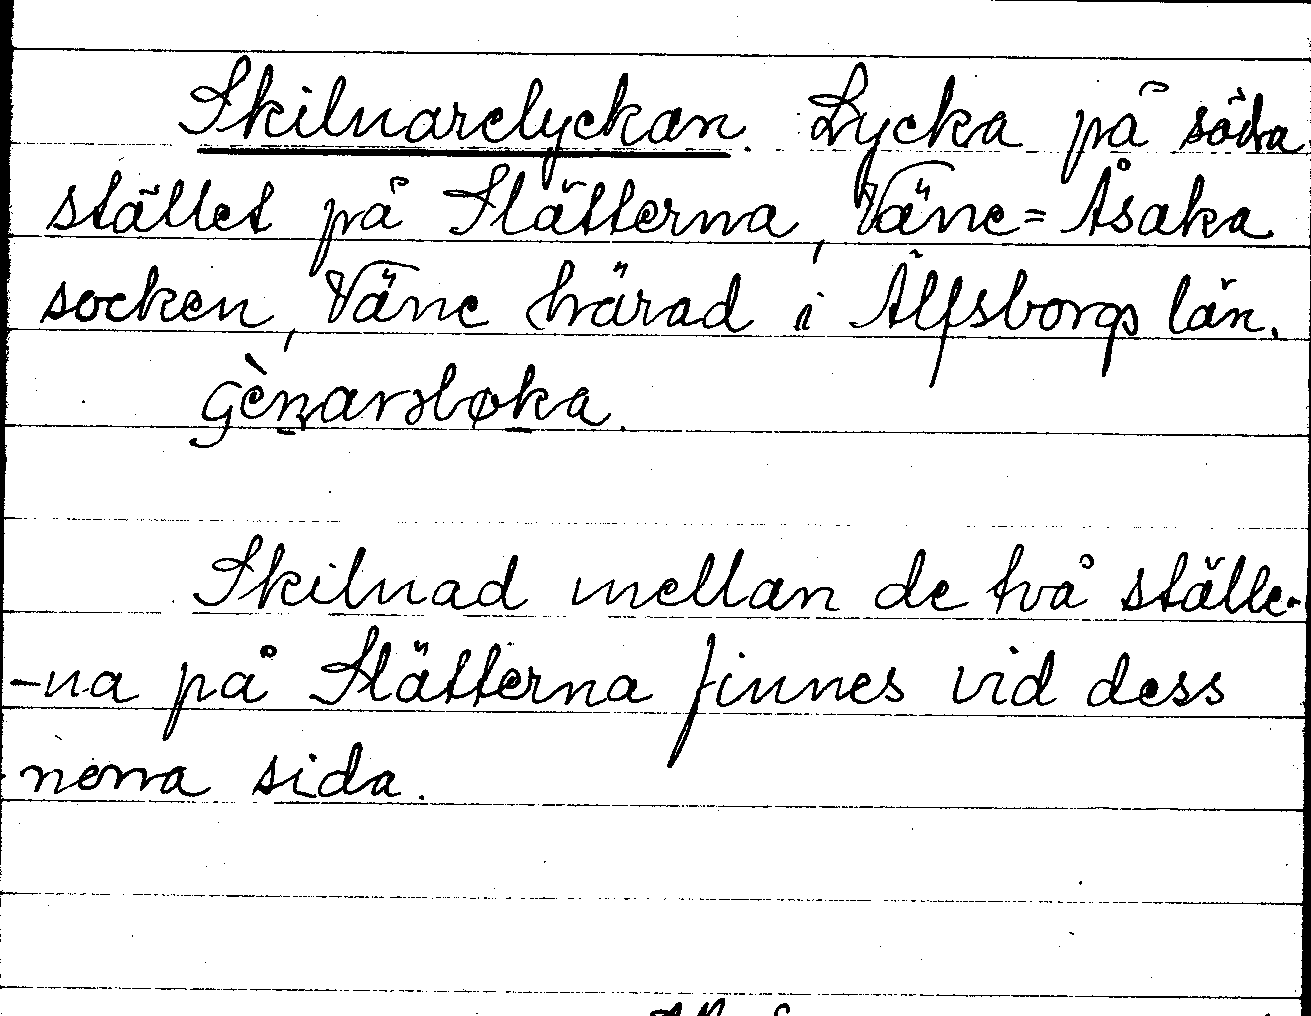 Skilnarelyckan. Lycka på södra
stället på Slätterna, Väne=Åsaka
socken, Väne härad i Älfsborgs län.
Skilnad mellan de två ställe-
-na på Slätterna finnes vid dess
norra sida.